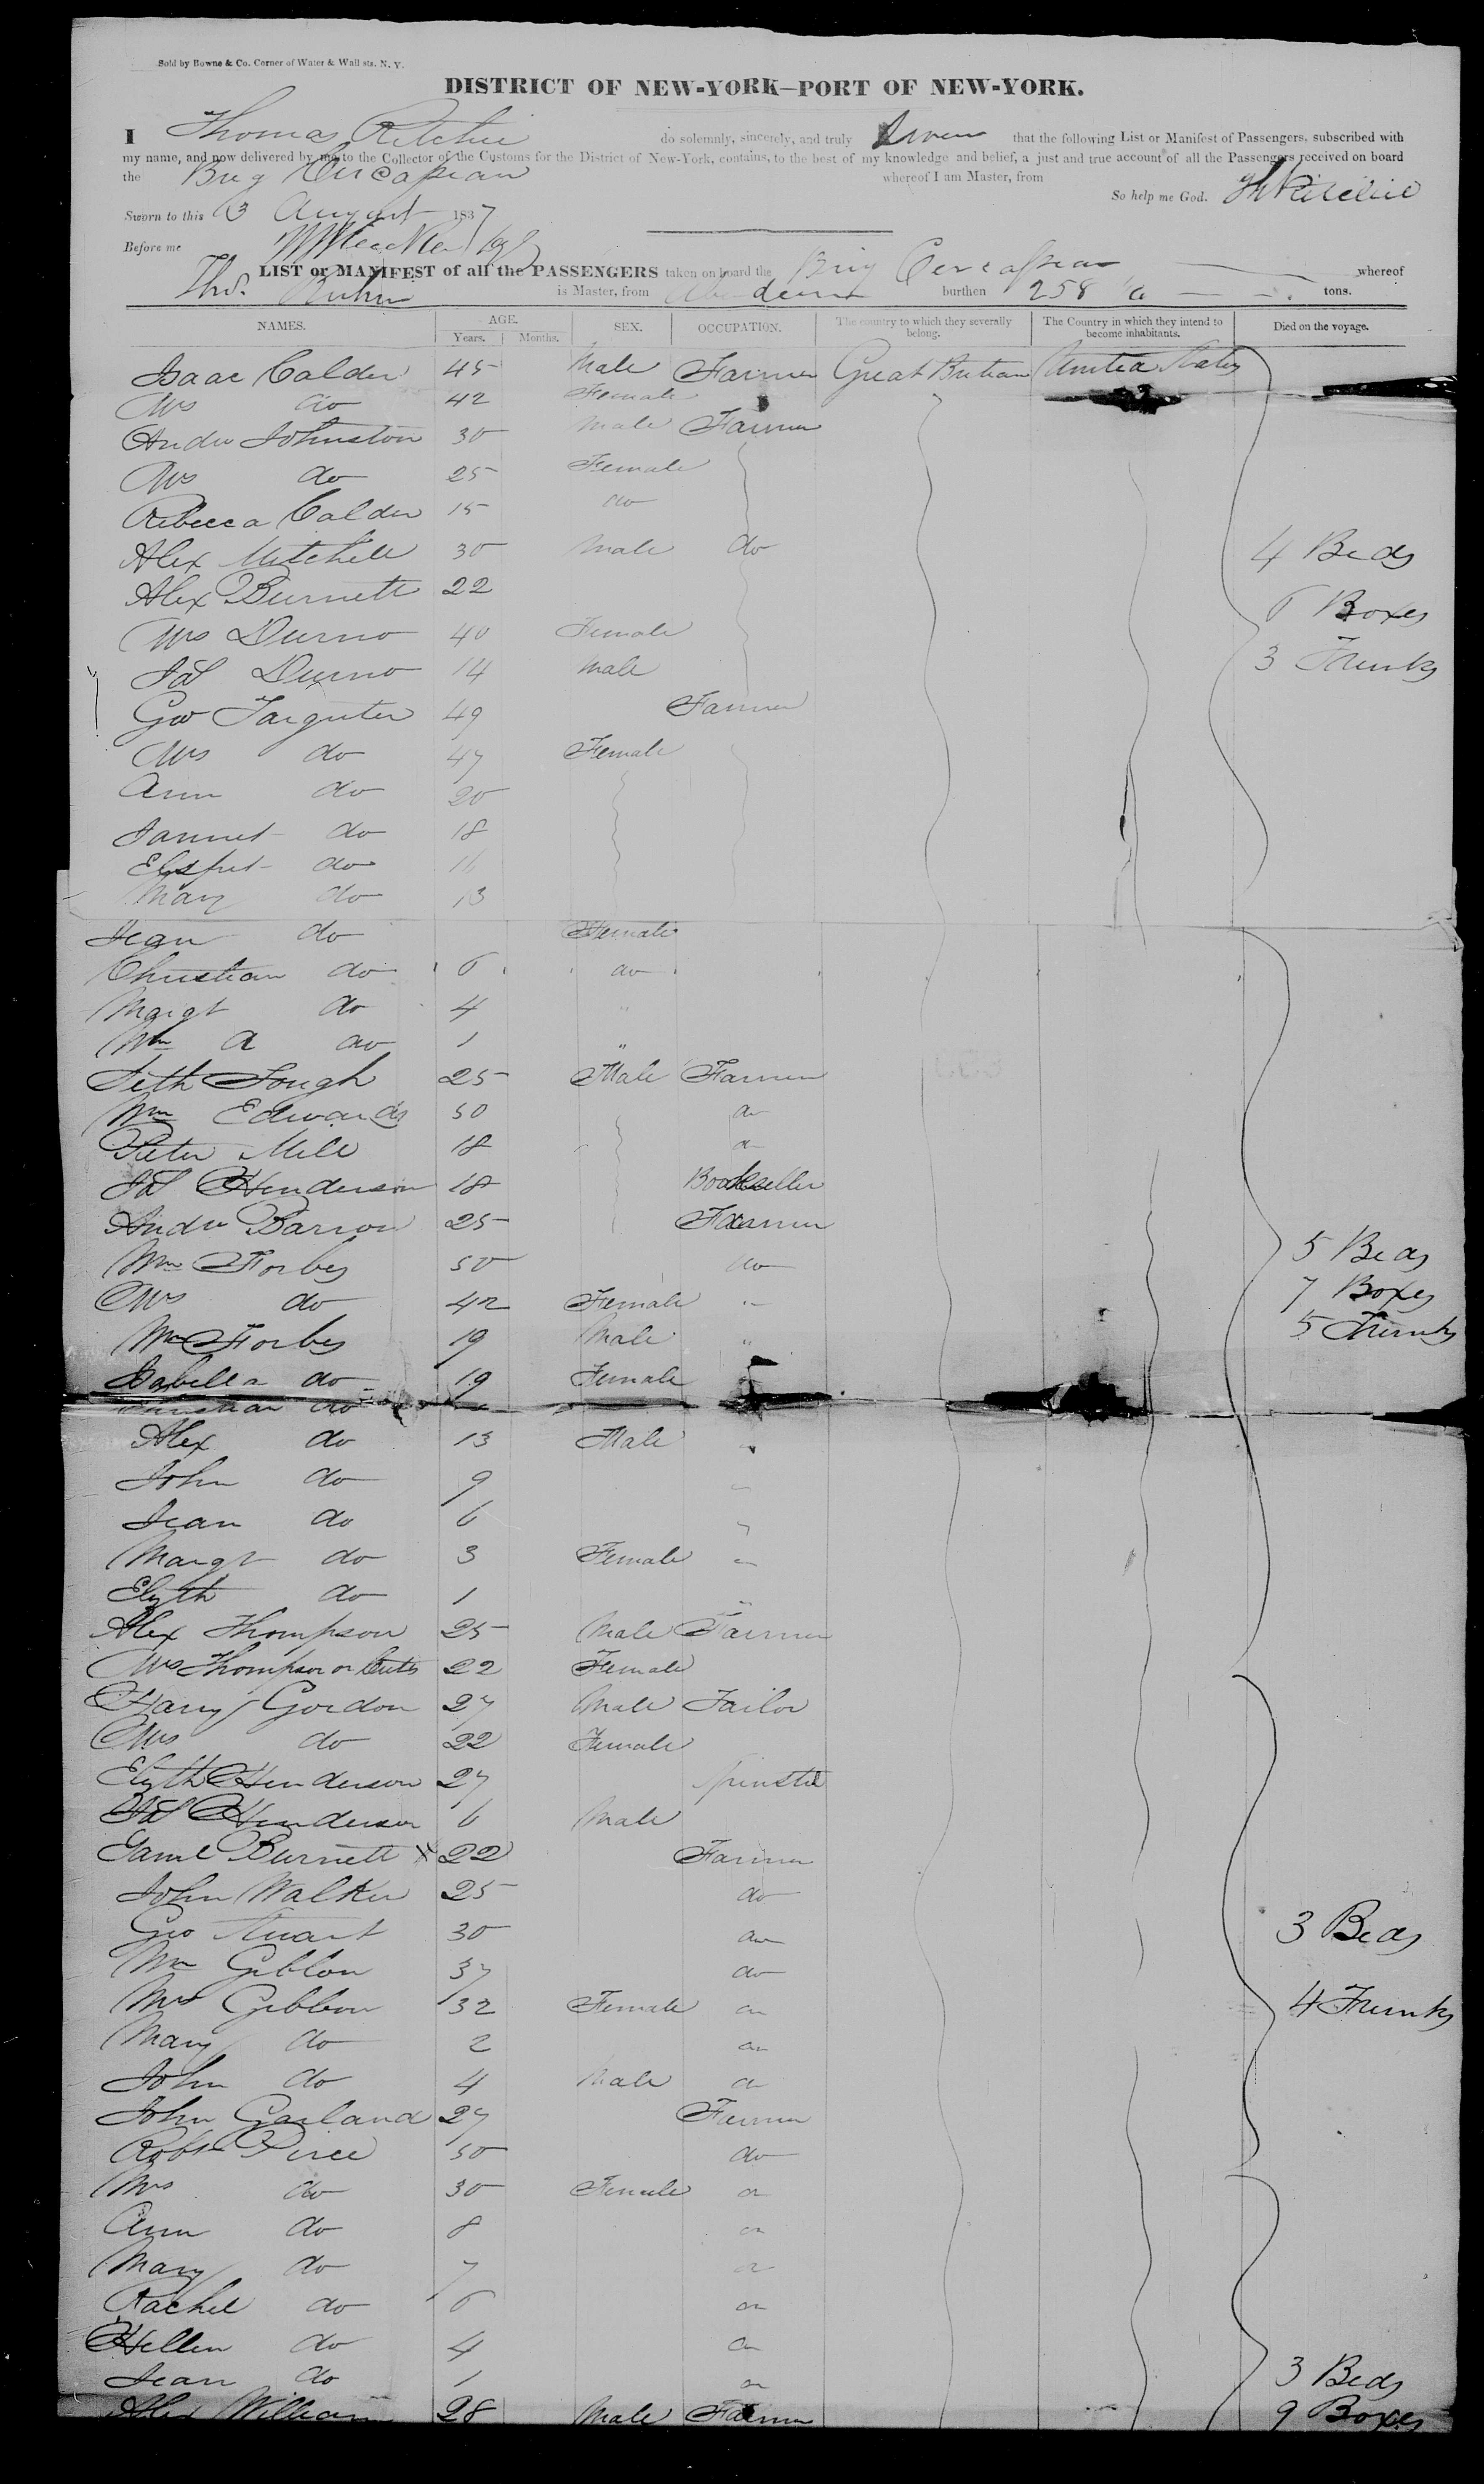 Sold by Bowne & Co. Corner of Water & Wall sts. N. Y.
DISTRICT OF NEW-YORK—PORT OF NEW-YORK.
I Thomas Ritchie do solemnly, sincerely, and truly Swear that the following List or Manifest of Passengers, subscribed with
my name, and now delivered by me to the Collector of the Customs for the District of New-York, contains, to the best of my knowledge and belief, a just and true account of all the Passengers received on board
the Brig Circassian whereof I am Master, from
So help me God. Th Ritchie
Sworn to this 3 August 1837
Before me
LIST or MANIFEST of all the PASSENGERS taken on board the Brig Circassian whereof
Thos. is Master, from Aberdeen burthen 258 tons.
NAMES. AGE. SEX. OCCUPATION. The country to which they severally belong. The Country in which they intend to become inhabitants. Died on the voyage.
Years. Months.
Isaac Calder 45 Male Farmer Great Britian United States
Mrs do 42 Female
Andw Johnston 30 Male Farmer
Mrs do 25 Female
Rebecca Calder 15 do
Alex Mitchell 30 Male do 4 Beds
Alex Burnett 22 6 Boxes
Mrs Durno 40 Female
Jas Durno 14 Male 3 Trunks
Geo 49 Farmer
Mrs do 47 Female
Ann do 20
Jannet do 18
Elspet do 16
Mary do 13
Jean do Female
Christian do 6 do
Margt do 4 "
Wm A do 1 "
Seth 25 Male Farmer
Wm Edwards 50 do
Peter Mill 18 do
Jas Henderson 18 Bookseller
Andw Barron 25 Farmer
Wm Forbes 50 do 5 Beds
Mrs do 42 Female " 7 Boxes
Wm Forbes 19 Male " 5 Trunks
Isabella do 19 Female
Christian do
Alex do 13 Male "
John do 9 "
Jean do 6 "
Margt do 3 Female "
Elizth do 1 "
Alex Thompson 25 Male Farmer
Mrs Thompson or 22 Female
Harry Gordon 27 Male Tailor
Mrs do 22 Female
Elizth Henderson 27 Spinster
Jas Henderson 6 Male
Burnett x 22 Farmer
John Walker 25 do
Geo Stuart 30 do 3 Beds
Wm Gibbon 37 do
Mrs Gibbon 32 Female do 4 Trunks
Mary do 2 do
John do 4 Male do
John Garland 27 Farmer
Robt Pirce 50 do
Mrs do 30 Female do
Ann do 8 do
Mary do 7 do
Rachel do 6 do
Hellen do 4 do
Jean do 1 do 3 Beds
Alex William 28 Male Farmer 9 Boxes